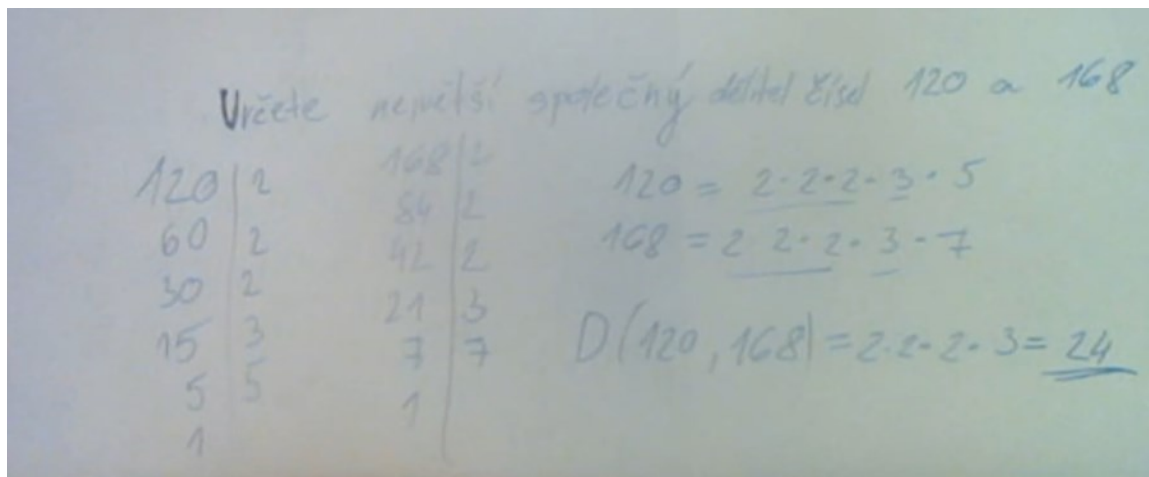 Určete největší společný dělitel čísel 120 a 168
120 | 2
60 | 2
30 | 2
15 | 3
5 | 5
1
168 | 2
84 | 2
42 | 2
21 | 3
7 | 7
1
120 = 2·2·2·3·5
168 = 2 2·2·3·7
D(120, 168) = 2·2·2·3 = 24